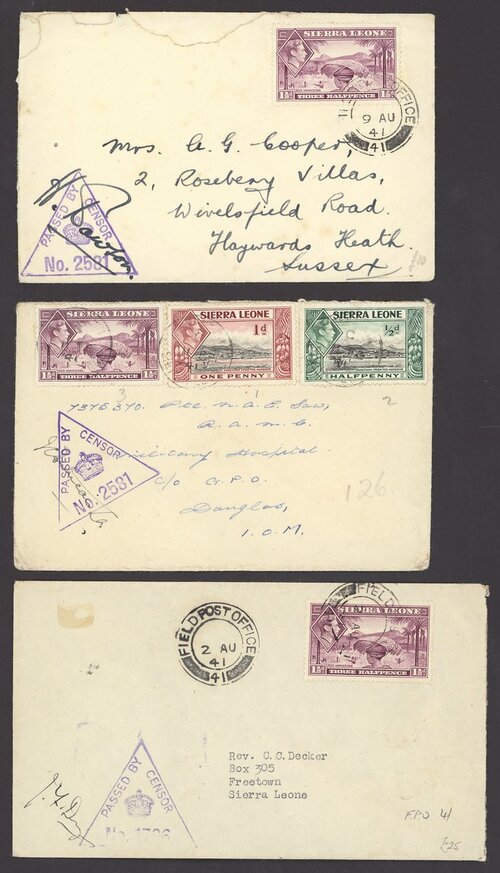 SIERRA LEONE
1½d THREE HALFPENCE 1½d
FIELD POST OFFICE
9 AU
41
41
Mrs. A. G. Cooper,
2, Rosebery Villas,
Wivelsfield Road.
Haywards Heath.
Sussex
PASSED BY CENSOR
No. 2581
£10
SIERRA LEONE
1½d THREE HALFPENCE 1½d
SIERRA LEONE
1d
ONE PENNY
SIERRA LEONE
½d
HALFPENNY
3
1
2
7375370. Pte. M.A.E.
R.A.M.C.
Military Hospital
C/o G.P.O.
Douglas,
I.O.M.
126
PASSED BY CENSOR
No. 2581
FIELD POST OFFICE
2 AU
41
41
FIELD
SIERRA LEONE
1½d THREE HALFPENCE 1½d
Rev. C.C. Decker
Box 305
Freetown
Sierra Leone
PASSED BY CENSOR
No.
FPO 41
£25